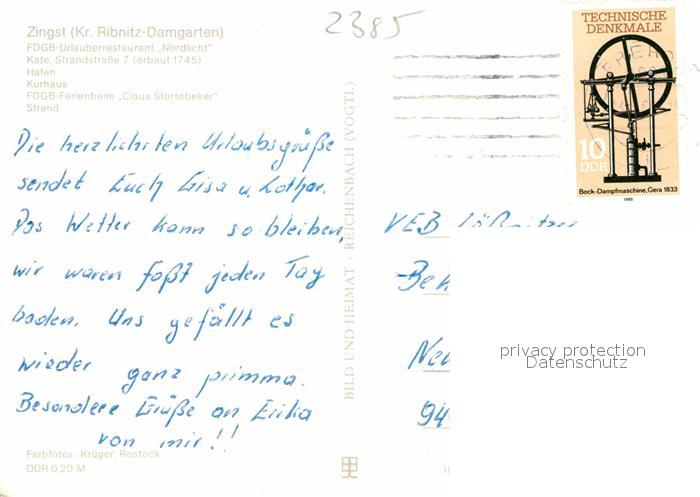 2385
Zingst (Kr. Ribnitz-Damgarten)
FDGB-Urlauberrestaurant „Nordlicht"
Kate, Strandstraße 7 (erbaut 1745)
Hafen
Kurhaus
FDGB-Ferienheim „Claus Störtebeker"
Strand
Die herzlichsten Urlaubsgrüße
sendet Euch Gisa u. Lothar.
Das Wetter kann so bleiben,
wir waren faßt jeden Tag
baden. Uns gefällt es
wieder ganz primma.
Besondere Grüße an Erika
von mir!!
Farbfotos: Krüger, Rostock
DDR 0,20 M
BILD UND HEIMAT · REICHENBACH (VOGTL)
TECHNISCHE
DENKMALE
10
DDR
Bock-Dampfmaschine, Gera 1833
1985
VEB
privacy protection
Datenschutz